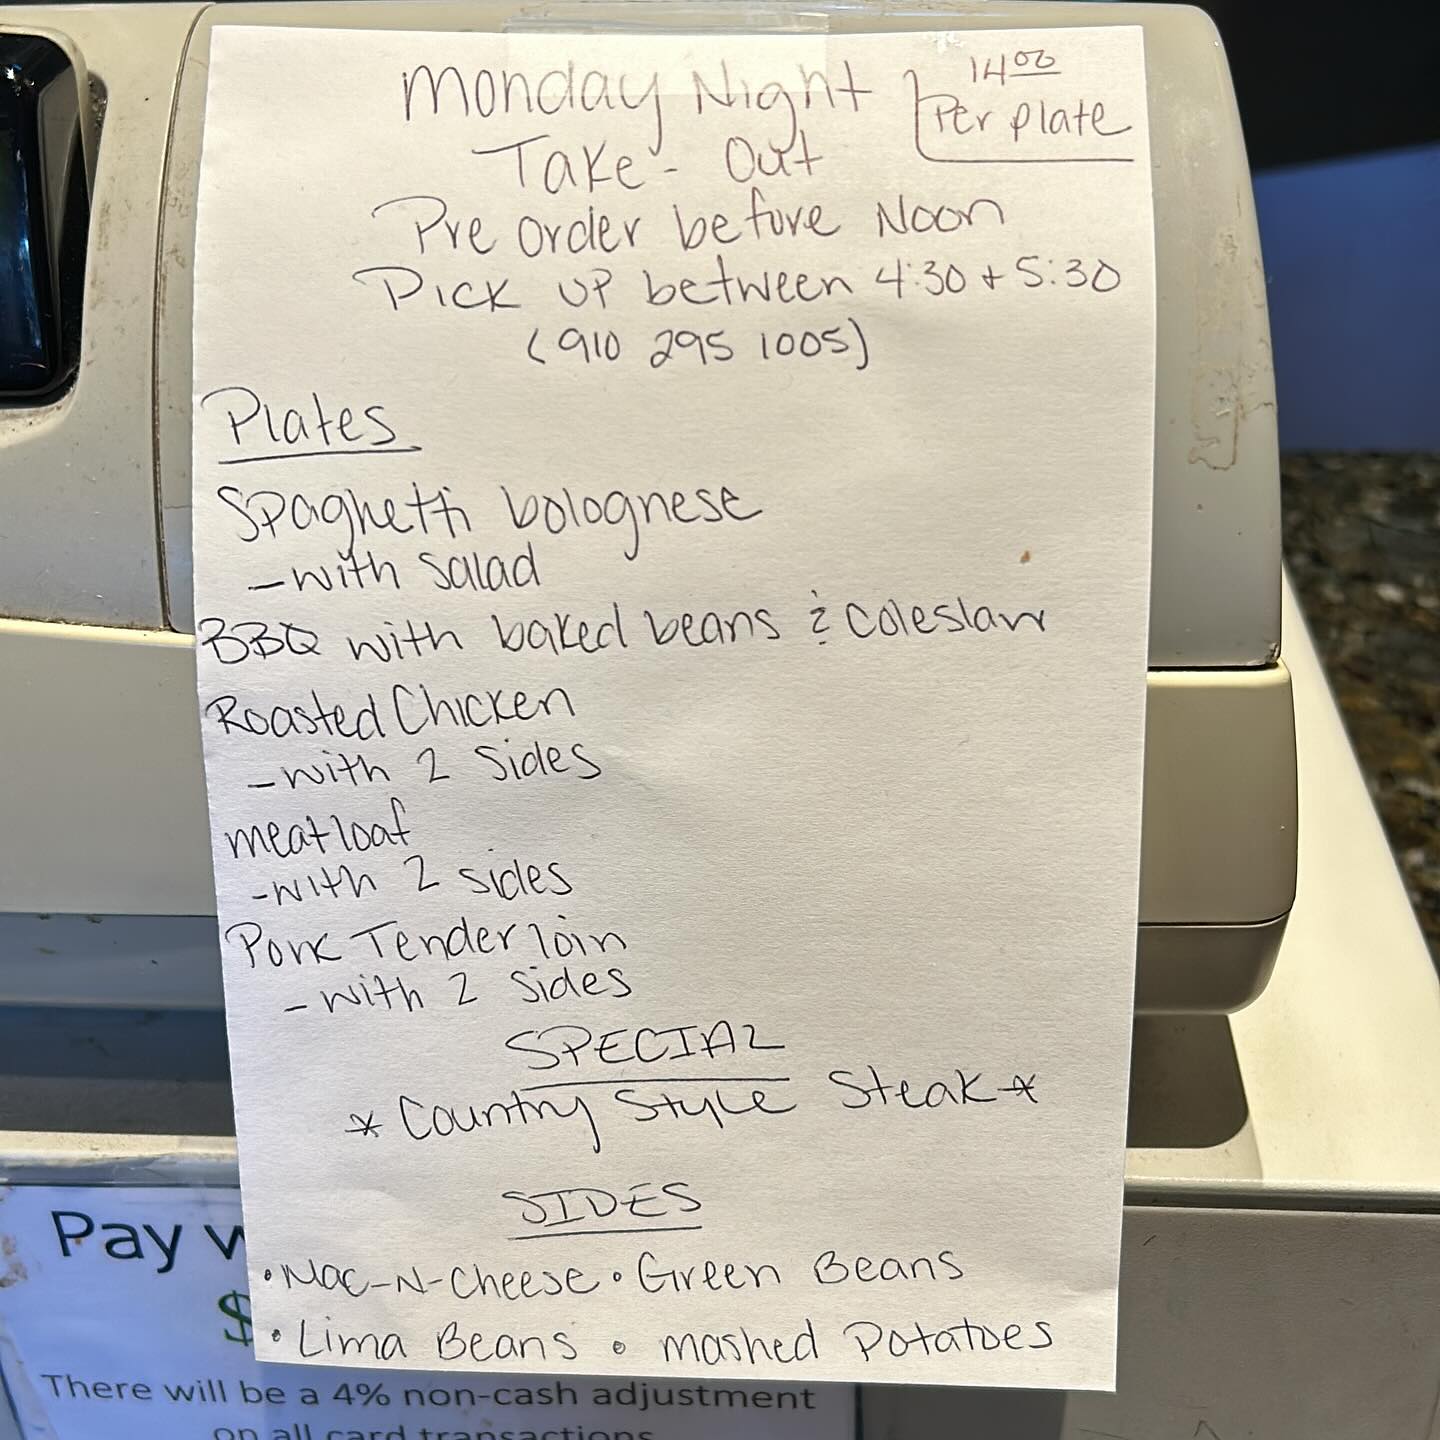 Monday Night
14.00
Per plate
Take-Out
Pre order before Noon
Pick up between 4:30 + 5:30
(910 295 1005)
Plates
Spaghetti bolognese
- with salad
BBQ with baked beans & coleslaw
Roasted Chicken
- with 2 sides
meatloaf
- with 2 sides
Pork Tenderloin
- with 2 sides
SPECIAL
* Country Style Steak *
SIDES
• Mac-N-Cheese • Green Beans
• Lima Beans • mashed Potatoes
Pay
$
There will be a 4% non-cash adjustment
on all card transactions